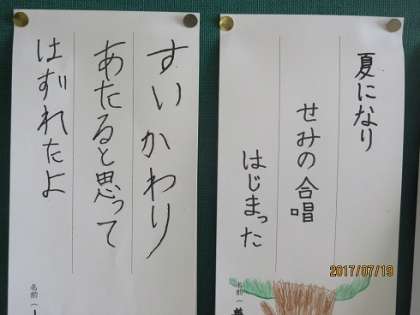 夏になり
せみの合唱
はじまった
名前(
すいかわり
あたると思って
はずれたよ
名前(
2017/07/19